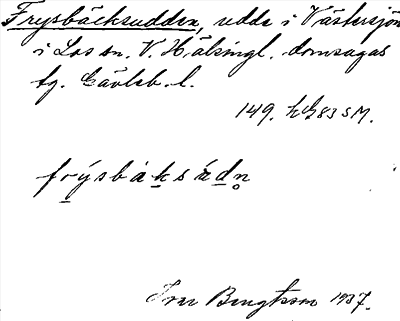 Frysbäcksudden, udde i Västersjön
i Los sn. V. Hälsingl. domsagas
tg. Gävleb. l.
149. hG83SM.
frýsbaksádn̥
Ivar Bengtsson 1937.